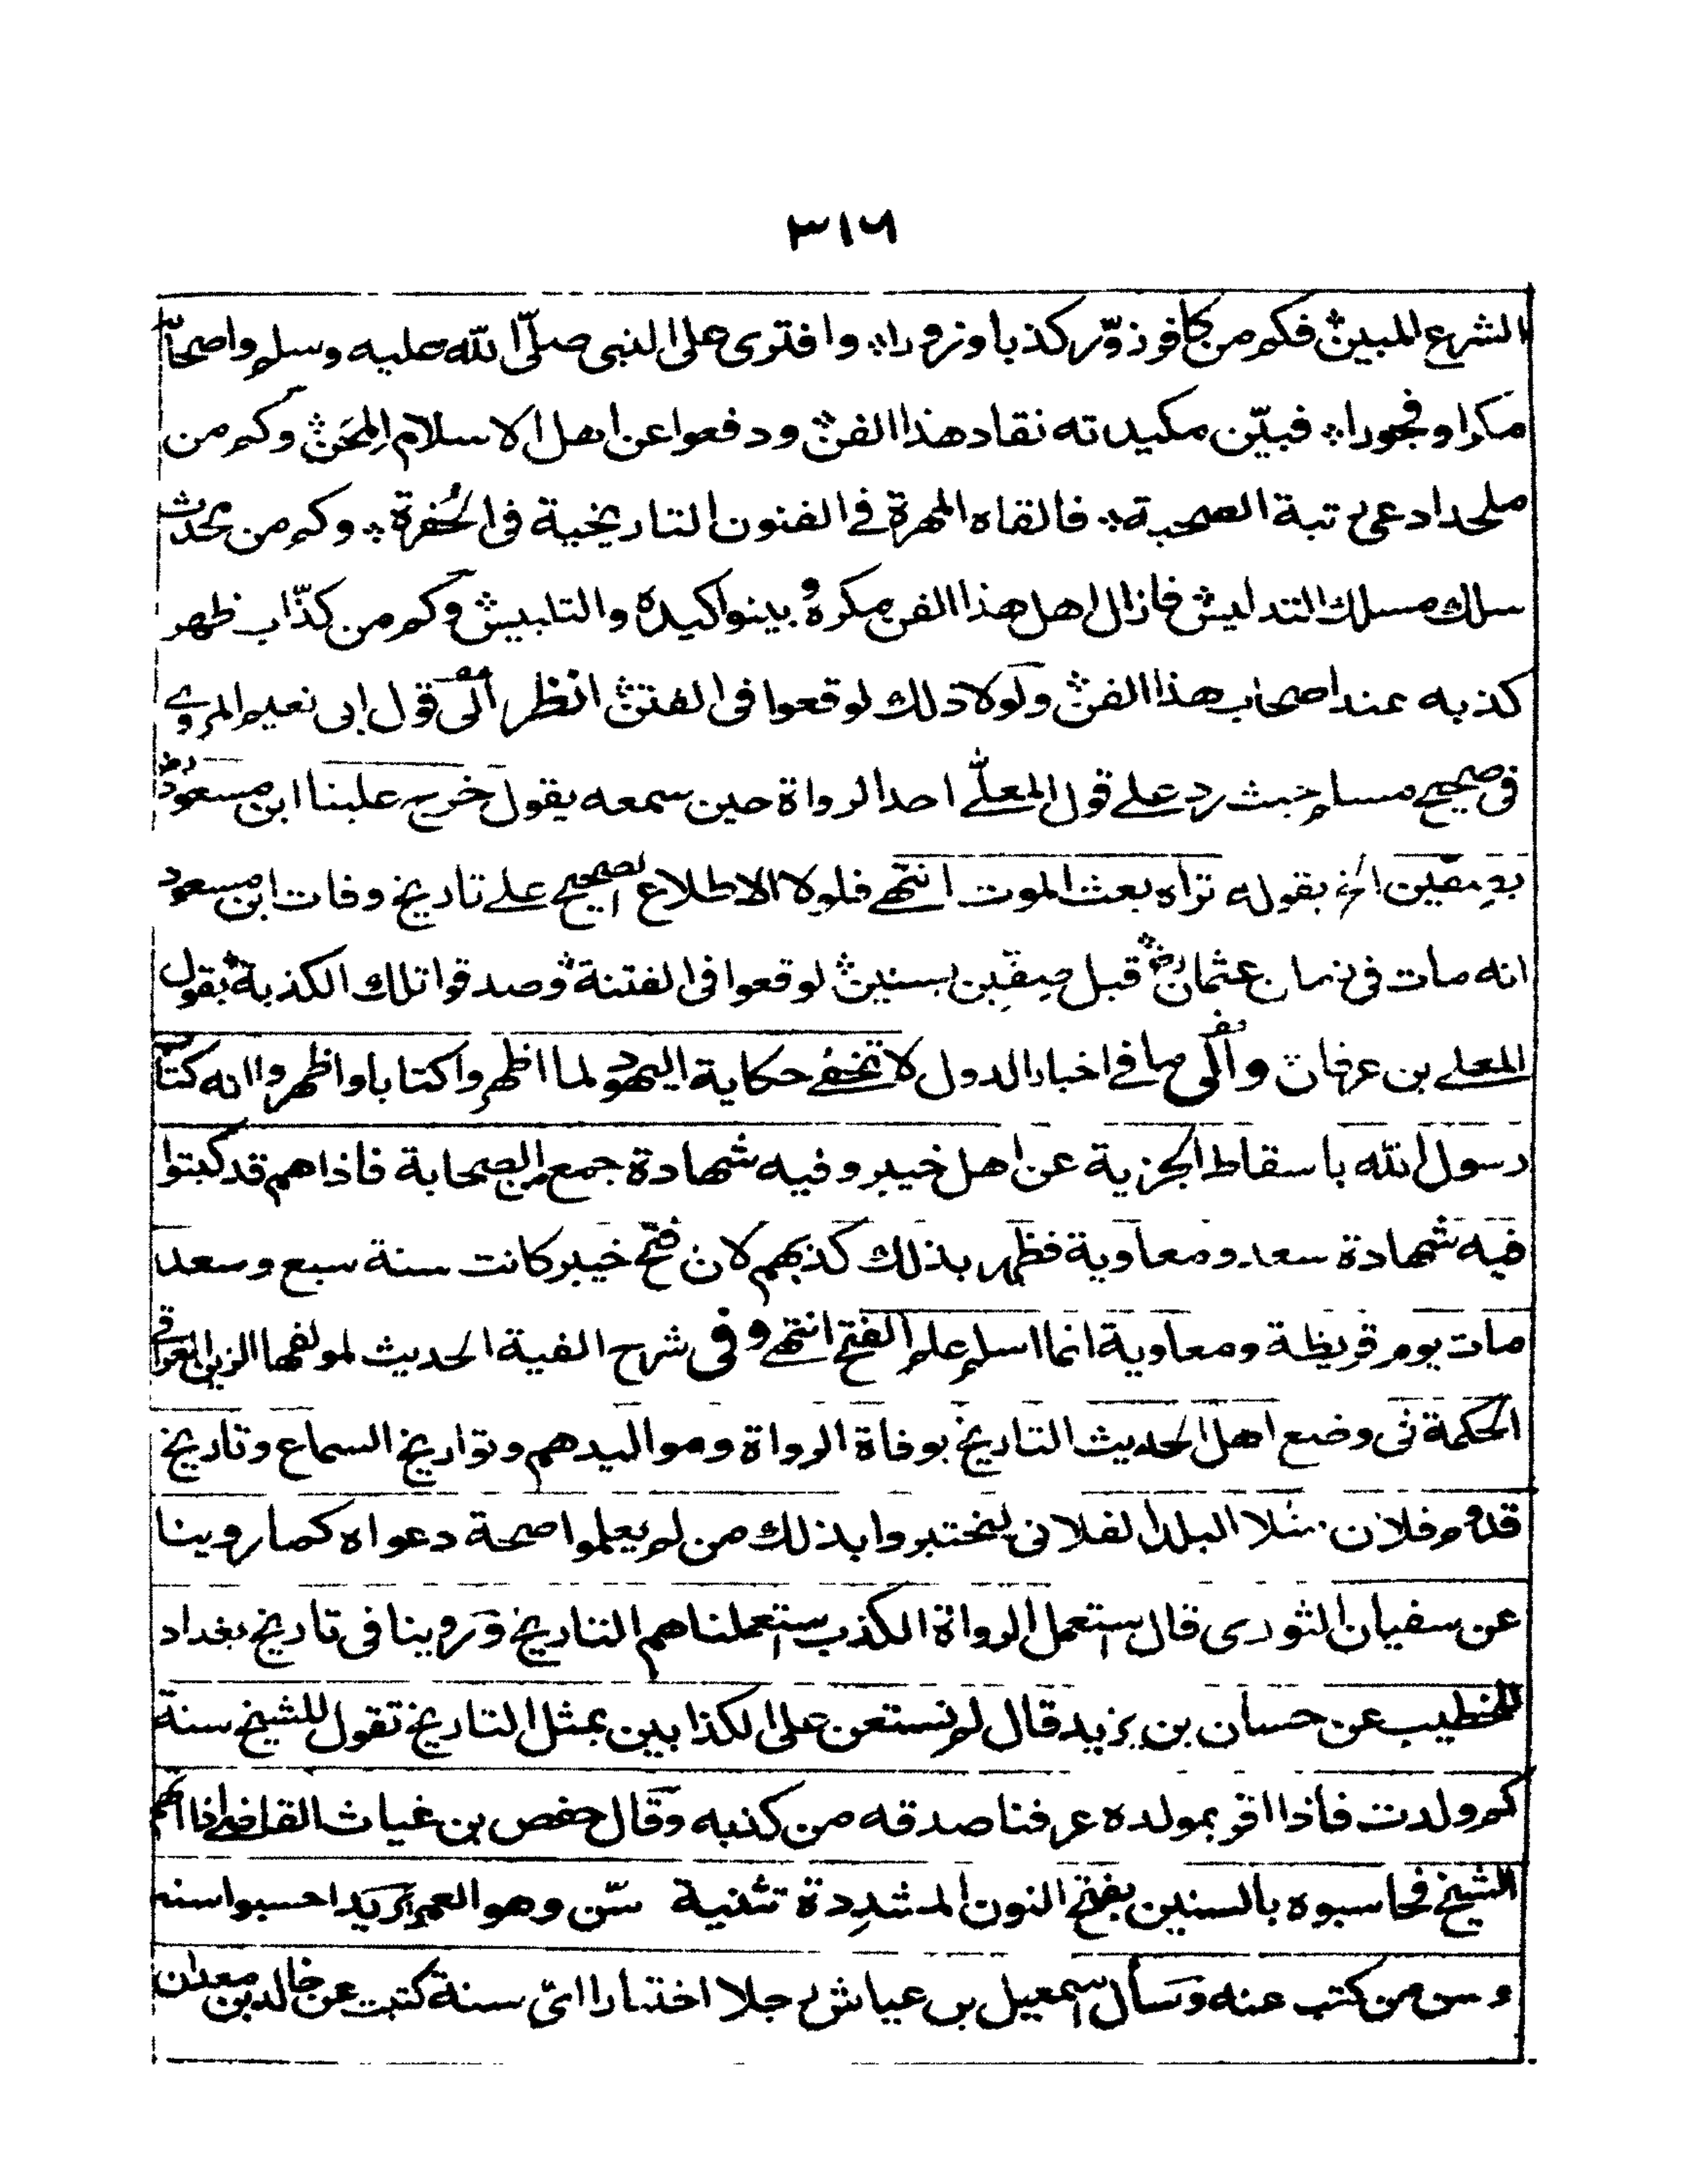 ٣١٦
الشرع المبين فكم من كافر زوّر كذبا وزورا وافترى على النبى صلّى الله عليه وسلم واصحابه
مكرا وفجورا فبيّن مكيدته نقاد هذا الفن ودفعوا عن اهل الاسلام المِحَن وكم من
ملحد ادعى رتبة الصحبة فالقاه المهرة فى الفنون التاريخية فى الحُفرة وكم من محدث
سلك مسلك التدليس فازال اهل هذا الفن مكره وبينوا كيده والتلبيس وكم من كذّاب ظهر
كذبه عند اصحاب هذا الفن ولولا ذلك لوقعوا فى الفتن انظر الى قول ابى نعيم المروى
فى صحيح مسلم حيث رد على قول المعلّى احد الرواة حين سمعه يقول خرج علينا ابن مسعود رض
بصفين الخ بقوله تراه بعث الموت انتهى فلولا الاطلاع الصحيح على تاريخ وفات ابن مسعود
انه مات فى زمان عثمان رض قبل صِفّين بسنين لوقعوا فى الفتنة وصدقوا تلك الكذبة بقول
المعلى بن عرفان والى ما فى اخبار الدول لا تخفى حكاية اليهود لما اظهروا كتابا واظهروا انه كتاب
رسول الله باسقاط الجزية عن اهل خيبر وفيه شهادة جمع الصحابة فاذا هم قد كتبوا
فيه شهادة سعد ومعاوية فظهر بذلك كذبهم لان فتح خيبر كانت سنة سبع وسعد
مات يوم قريظة ومعاوية انما اسلم عام الفتح انتهى وفى شرح الفية الحديث لمولفها الزين العراقى
الحكمة فى وضع اهل الحديث التاريخ بوفاة الرواة ومواليدهم وتواريخ السماع وتاريخ
قدوم فلان مثلا البلد الفلانى ليختبروا بذلك من لم يعلموا صحة دعواه كما روينا
عن سفيان الثورى قال استعمل الرواة الكذب استعملنا هم التاريخ وروينا فى تاريخ بغداد
للخطيب عن حسان بن يزيد قال لم نستعن على الكذابين بمثل التاريخ تقول للشيخ سنة
كم ولدت فاذا اقر بمولده عرفنا صدقه من كذبه وقال حفص بن غياث القاضى اذا اتهم
الشيخ فحاسبوه بالسنين بفتح النون المشددة تثنية سّن وهو العمر يريد احسبوا سنه
وسن من كتب عنه وسأل اسمعيل بن عياش رجلا اختبارا اىّ سنة كتبت عن خالد بن معدان